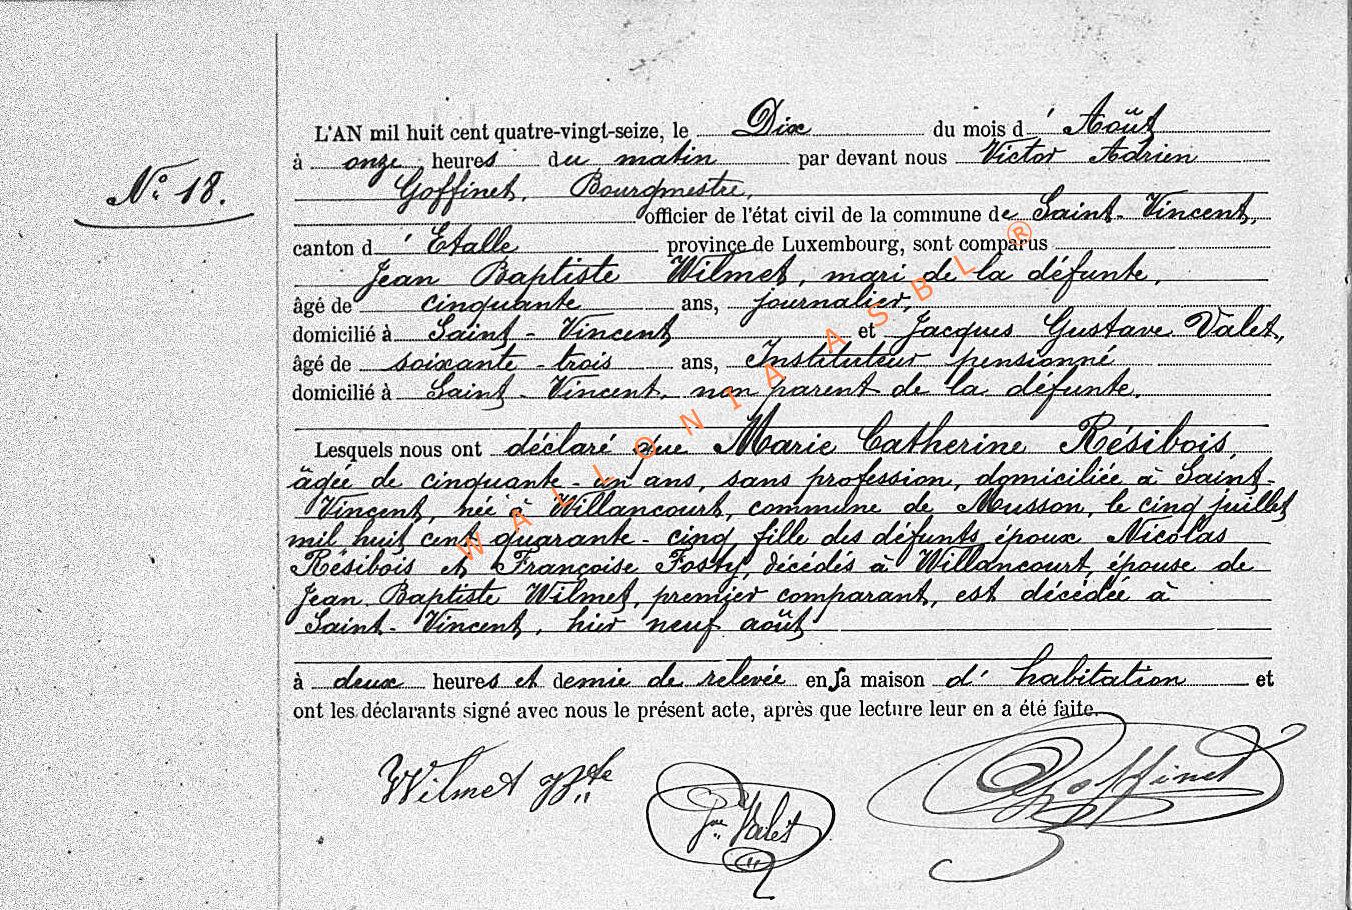 L'AN mil huit cent quatre-vingt-seize, le Dix du mois d' Août
à onze heures du matin par devant nous Victor Adrien
N° 18.
Goffinet, Bourgmestre,
officier de l'état civil de la commune de Saint-Vincent,
canton d' Etalle province de Luxembourg, sont comparus
Jean Baptiste Wilmet, mari de la défunte,
âgé de cinquante ans, journalier,
domicilié à Saint-Vincent et Jacques Gustave Valet,
âgé de soixante-trois ans, Instituteur pensionné
domicilié à Saint-Vincent, non parent de la défunte.
Lesquels nous ont déclaré que Marie Catherine Résibois,
âgée de cinquante-un ans, sans profession, domiciliée à Saint-
Vincent, née à Willancourt, commune de Musson, le cinq juillet
mil huit cent quarante-cinq fille des défunts époux Nicolas
Résibois et Françoise Fosty, décédés à Willancourt, épouse de
Jean Baptiste Wilmet, premier comparant, est décédée à
Saint-Vincent, hier neuf août
à deux heures et demie de relevée en sa maison d'habitation et
ont les déclarants signé avec nous le présent acte, après que lecture leur en a été faite.
Wilmet Bte
Valet
Goffinet
WALLONIA ASBL ®